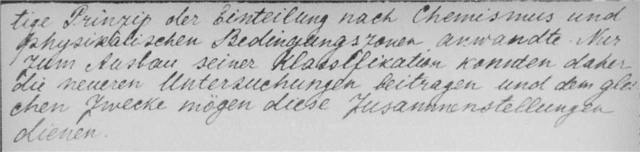 tige Prinzip der Einteilung nach Chemismus und
physikalischen Bedingungszonen anwandte. Nur
zum Ausbau seiner Klassifikation konnten daher
die neueren Untersuchungen beitragen und dem glei-
chen Zwecke mögen diese Zusammenstellungen
dienen.